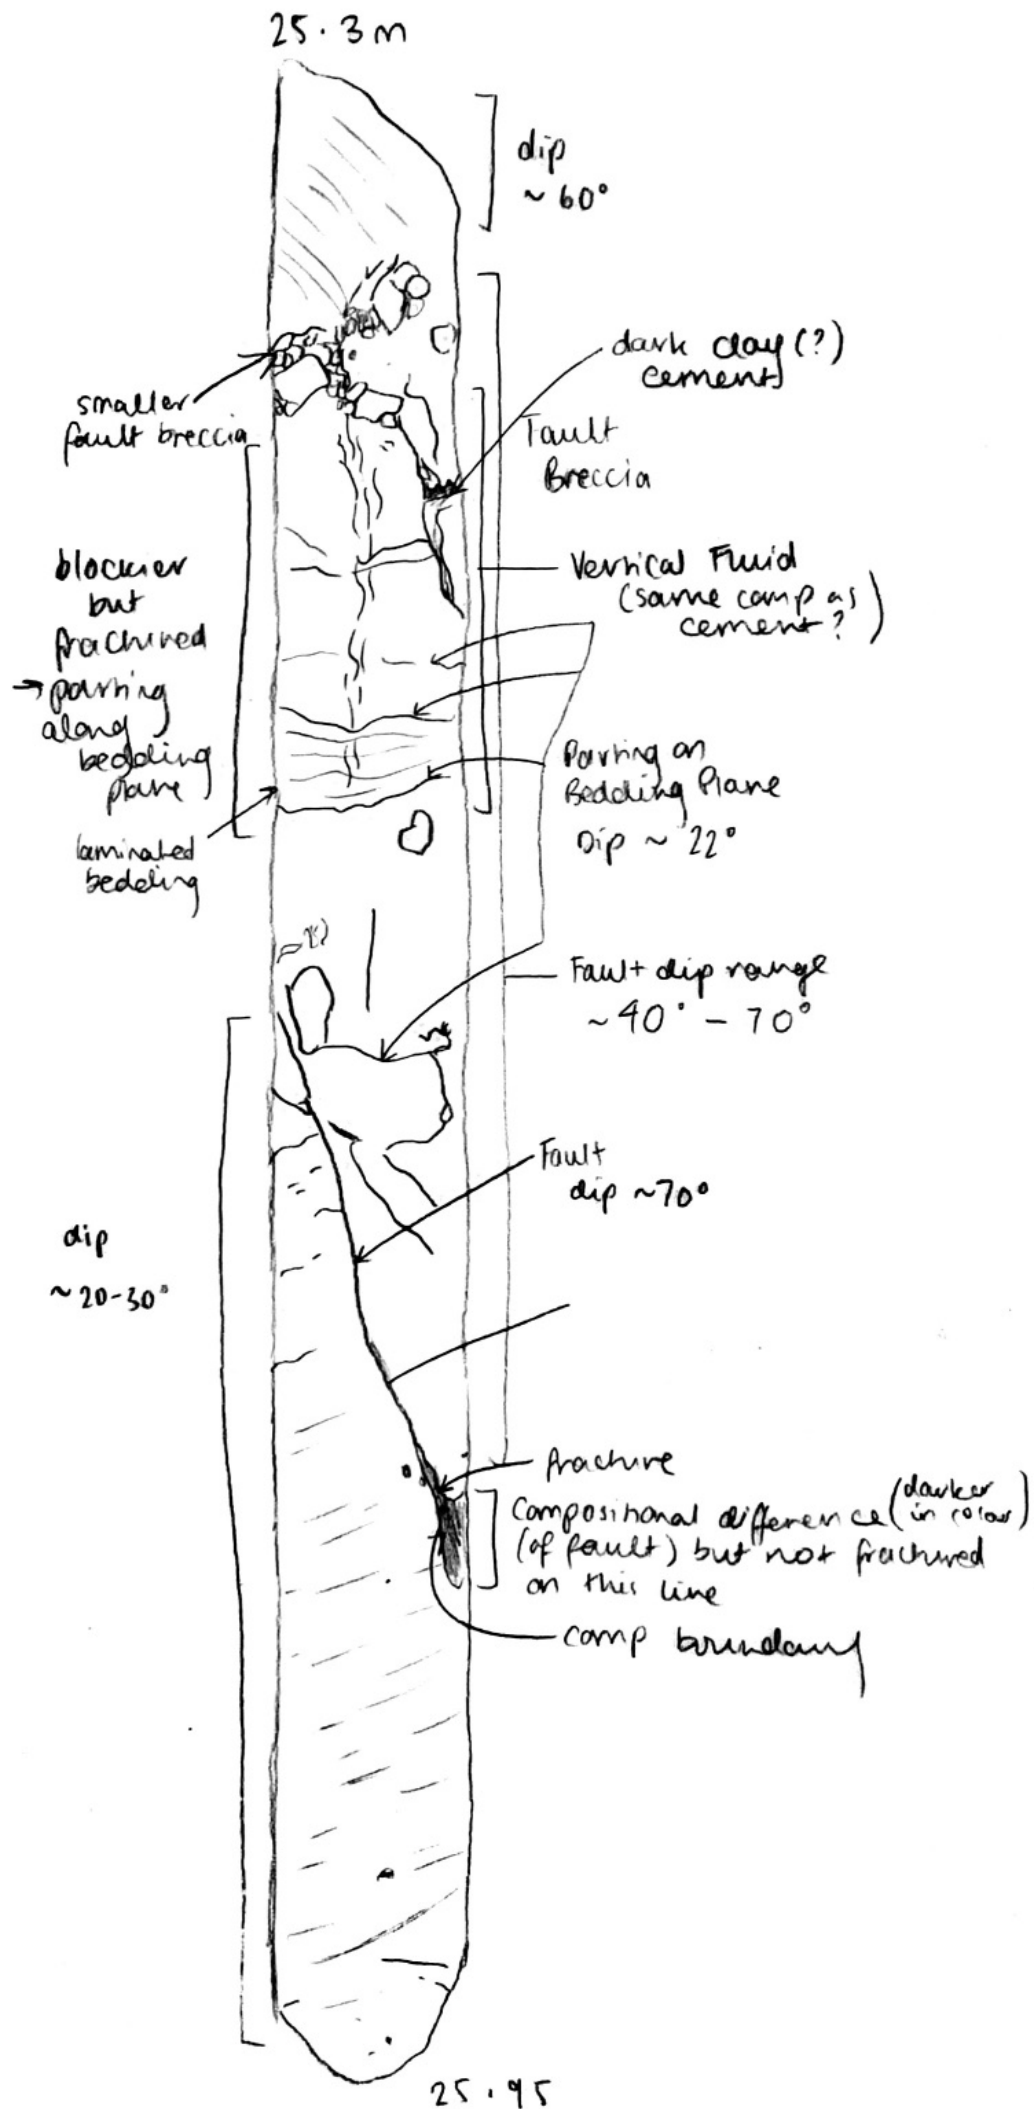 25.3m
dip
~ 60°
dark clay (?)
cement
smaller
fault breccia
Fault
Breccia
blockier
but
fractured
→ parting
along
bedding
plane
Vertical Fluid
(same comp as
cement?)
Parting on
Bedding Plane
Dip ~ 22°
laminated
bedding
Fault dip range
~40° - 70°
Fault
dip ~70°
dip
~20-30°
fracture
Compositional difference (darker
in colour)
(of fault) but not fractured
on this line
comp boundary
25.95